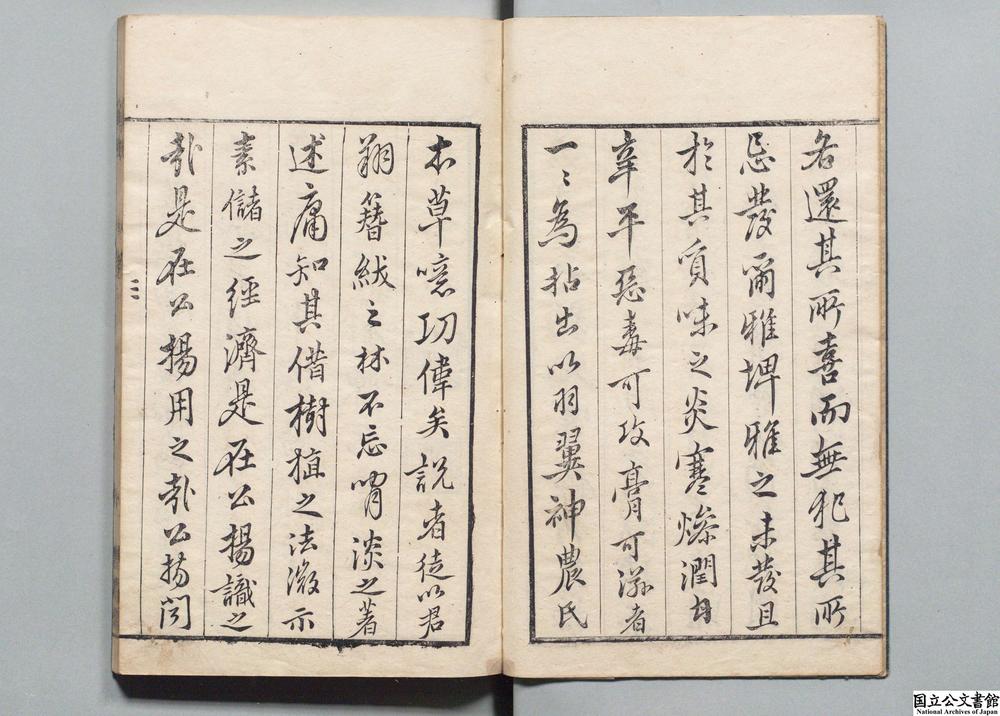 各還其所喜而無犯其所
忌發爾雅埤雅之未發且
於其質味之炎寒燥潤甘
辛平惡毒可攻膏可滋者
一〻為拈出以羽翼神農氏
本草噫功偉矣説者徒以君
翔簪紱之林不忘嘯淡之著
述庸知其借樹植之法微示
素儲之經濟是在公揚識之
哉是在公揚用之哉公揚問
国立公文書館
National Archives of Japan